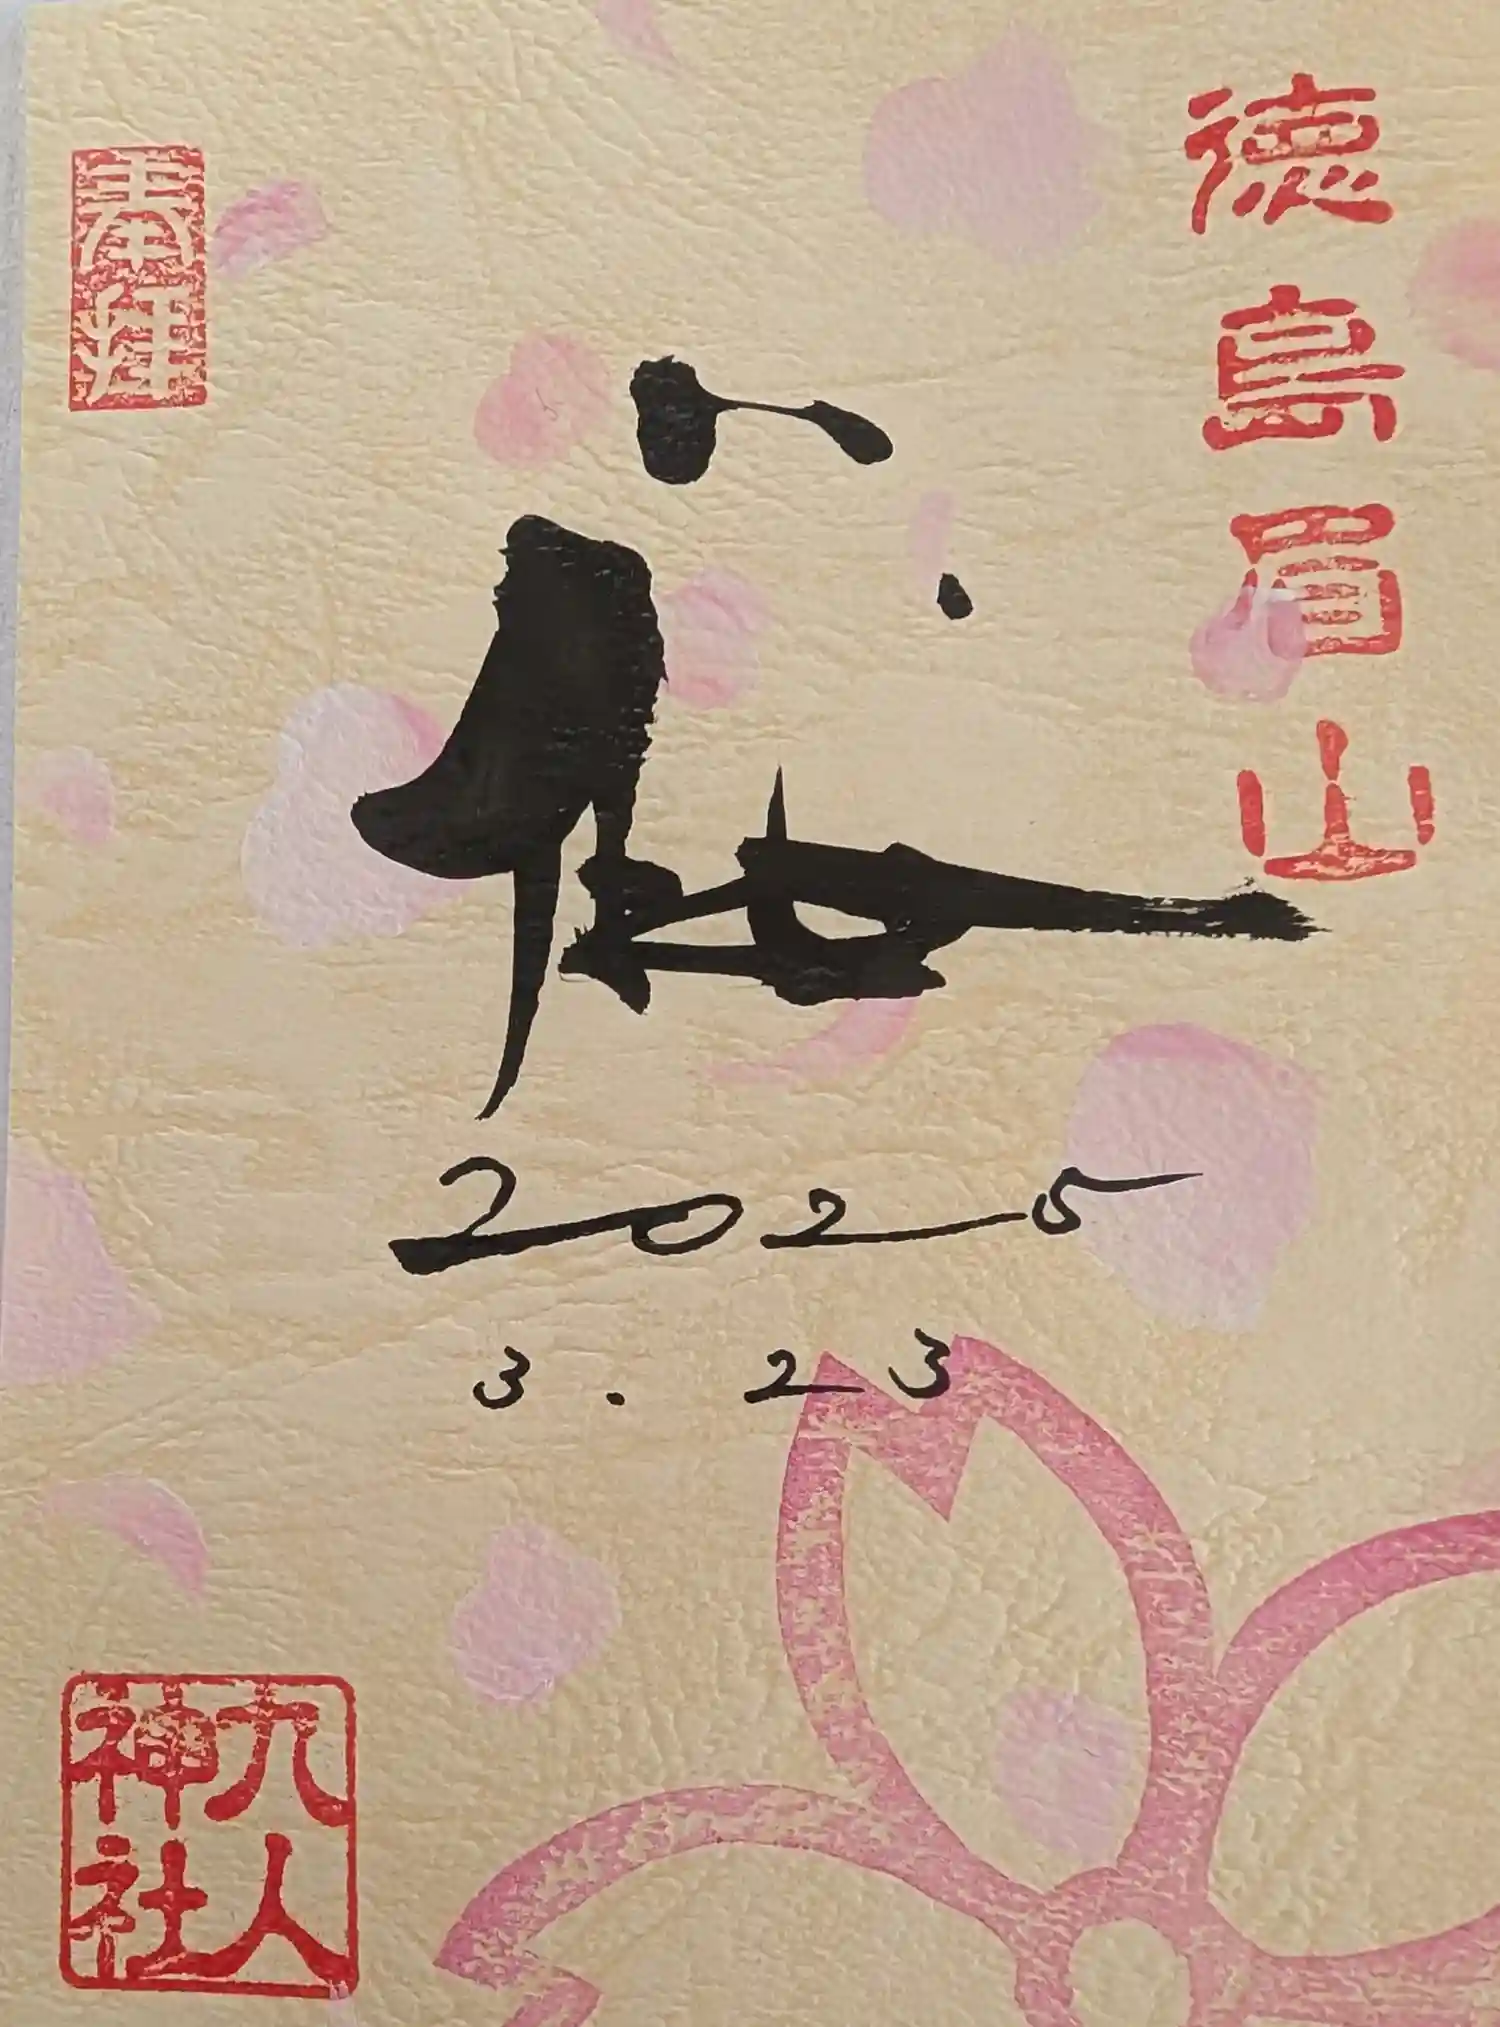 徳島眉山
奉拝
2025
3.23
九人
神社